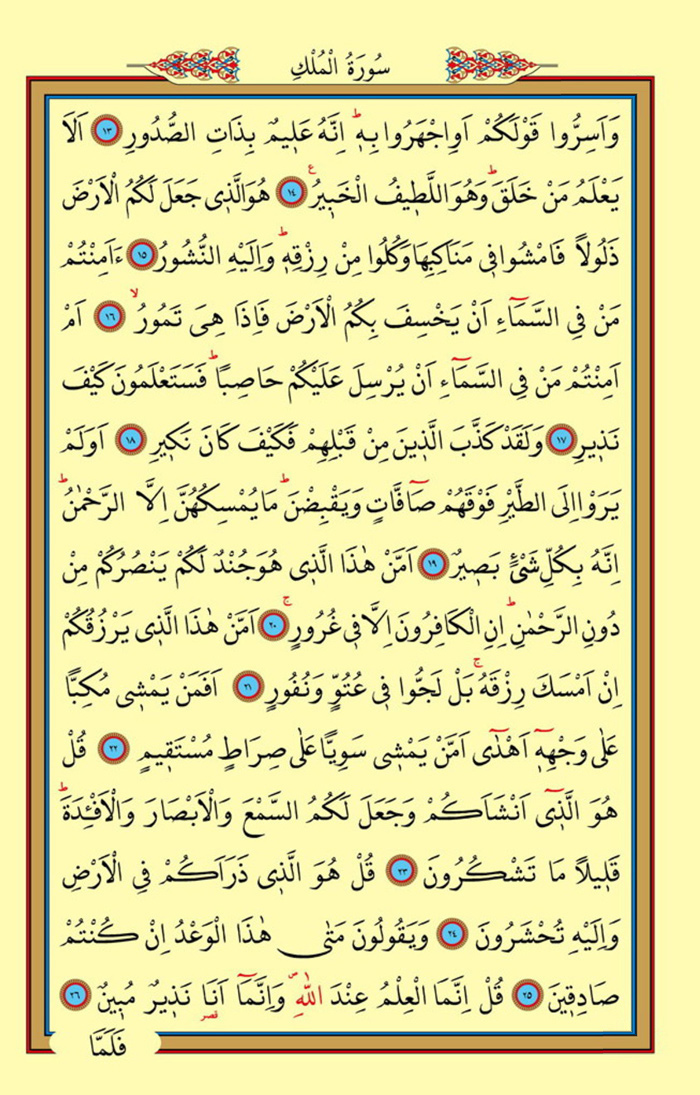 سُورَةُ الْمُلْكِ
وَاَسِرُّوا قَوْلَكُمْ اَوِاجْهَرُوا بِهِۜ اِنَّهُ عَلٖيمٌ بِذَاتِ الصُّدُورِ ﴿١٣﴾ اَلَا
يَعْلَمُ مَنْ خَلَقَۜ وَهُوَ اللَّطٖيفُ الْخَبٖيرُ ﴿١٤﴾ هُوَ الَّذٖي جَعَلَ لَكُمُ الْاَرْضَ
ذَلُولاً فَامْشُوا فٖي مَنَاكِبِهَا وَكُلُوا مِنْ رِزْقِهٖۜ وَاِلَيْهِ النُّشُورُ ﴿١٥﴾ ءَاَمِنْتُمْ
مَنْ فِي السَّمَٓاءِ اَنْ يَخْسِفَ بِكُمُ الْاَرْضَ فَاِذَا هِيَ تَمُورُۙ ﴿١٦﴾ اَمْ
اَمِنْتُمْ مَنْ فِي السَّمَٓاءِ اَنْ يُرْسِلَ عَلَيْكُمْ حَاصِبًاۜ فَسَتَعْلَمُونَ كَيْفَ
نَذٖيرِ ﴿١٧﴾ وَلَقَدْ كَذَّبَ الَّذٖينَ مِنْ قَبْلِهِمْ فَكَيْفَ كَانَ نَكٖيرِ ﴿١٨﴾ اَوَلَمْ
يَرَوْا اِلَى الطَّيْرِ فَوْقَهُمْ صَٓافَّاتٍ وَيَقْبِضْنَۜ مَا يُمْسِكُهُنَّ اِلَّا الرَّحْمٰنُۜ
اِنَّهُ بِكُلِّ شَيْءٍ بَصٖيرٌ ﴿١٩﴾ اَمَّنْ هٰذَا الَّذٖي هُوَ جُنْدٌ لَكُمْ يَنْصُرُكُمْ مِنْ
دُونِ الرَّحْمٰنِۜ اِنِ الْكَافِرُونَ اِلَّا فٖي غُرُورٍۚ ﴿٢٠﴾ اَمَّنْ هٰذَا الَّذٖي يَرْزُقُكُمْ
اِنْ اَمْسَكَ رِزْقَهُۚ بَلْ لَجُّوا فٖي عُتُوٍّ وَنُفُورٍ ﴿٢١﴾ اَفَمَنْ يَمْشٖي مُكِبًّا
عَلٰى وَجْهِهٖٓ اَهْدٰٓى اَمَّنْ يَمْشٖي سَوِيًّا عَلٰى صِرَاطٍ مُسْتَقٖيمٍ ﴿٢٢﴾ قُلْ
هُوَ الَّذٖٓي اَنْشَاَكُمْ وَجَعَلَ لَكُمُ السَّمْعَ وَالْاَبْصَارَ وَالْاَفْـِٔدَةَۜ
قَلٖيلاً مَا تَشْكُرُونَ ﴿٢٣﴾ قُلْ هُوَ الَّذٖي ذَرَاَكُمْ فِي الْاَرْضِ
وَاِلَيْهِ تُحْشَرُونَ ﴿٢٤﴾ وَيَقُولُونَ مَتٰى هٰذَا الْوَعْدُ اِنْ كُنْتُمْ
صَادِقٖينَ ﴿٢٥﴾ قُلْ اِنَّمَا الْعِلْمُ عِنْدَ اللّٰهِ وَاِنَّمَٓا اَنَا۬ نَذٖيرٌ مُبٖينٌ ﴿٢٦﴾
قصر
فَلَمَّا